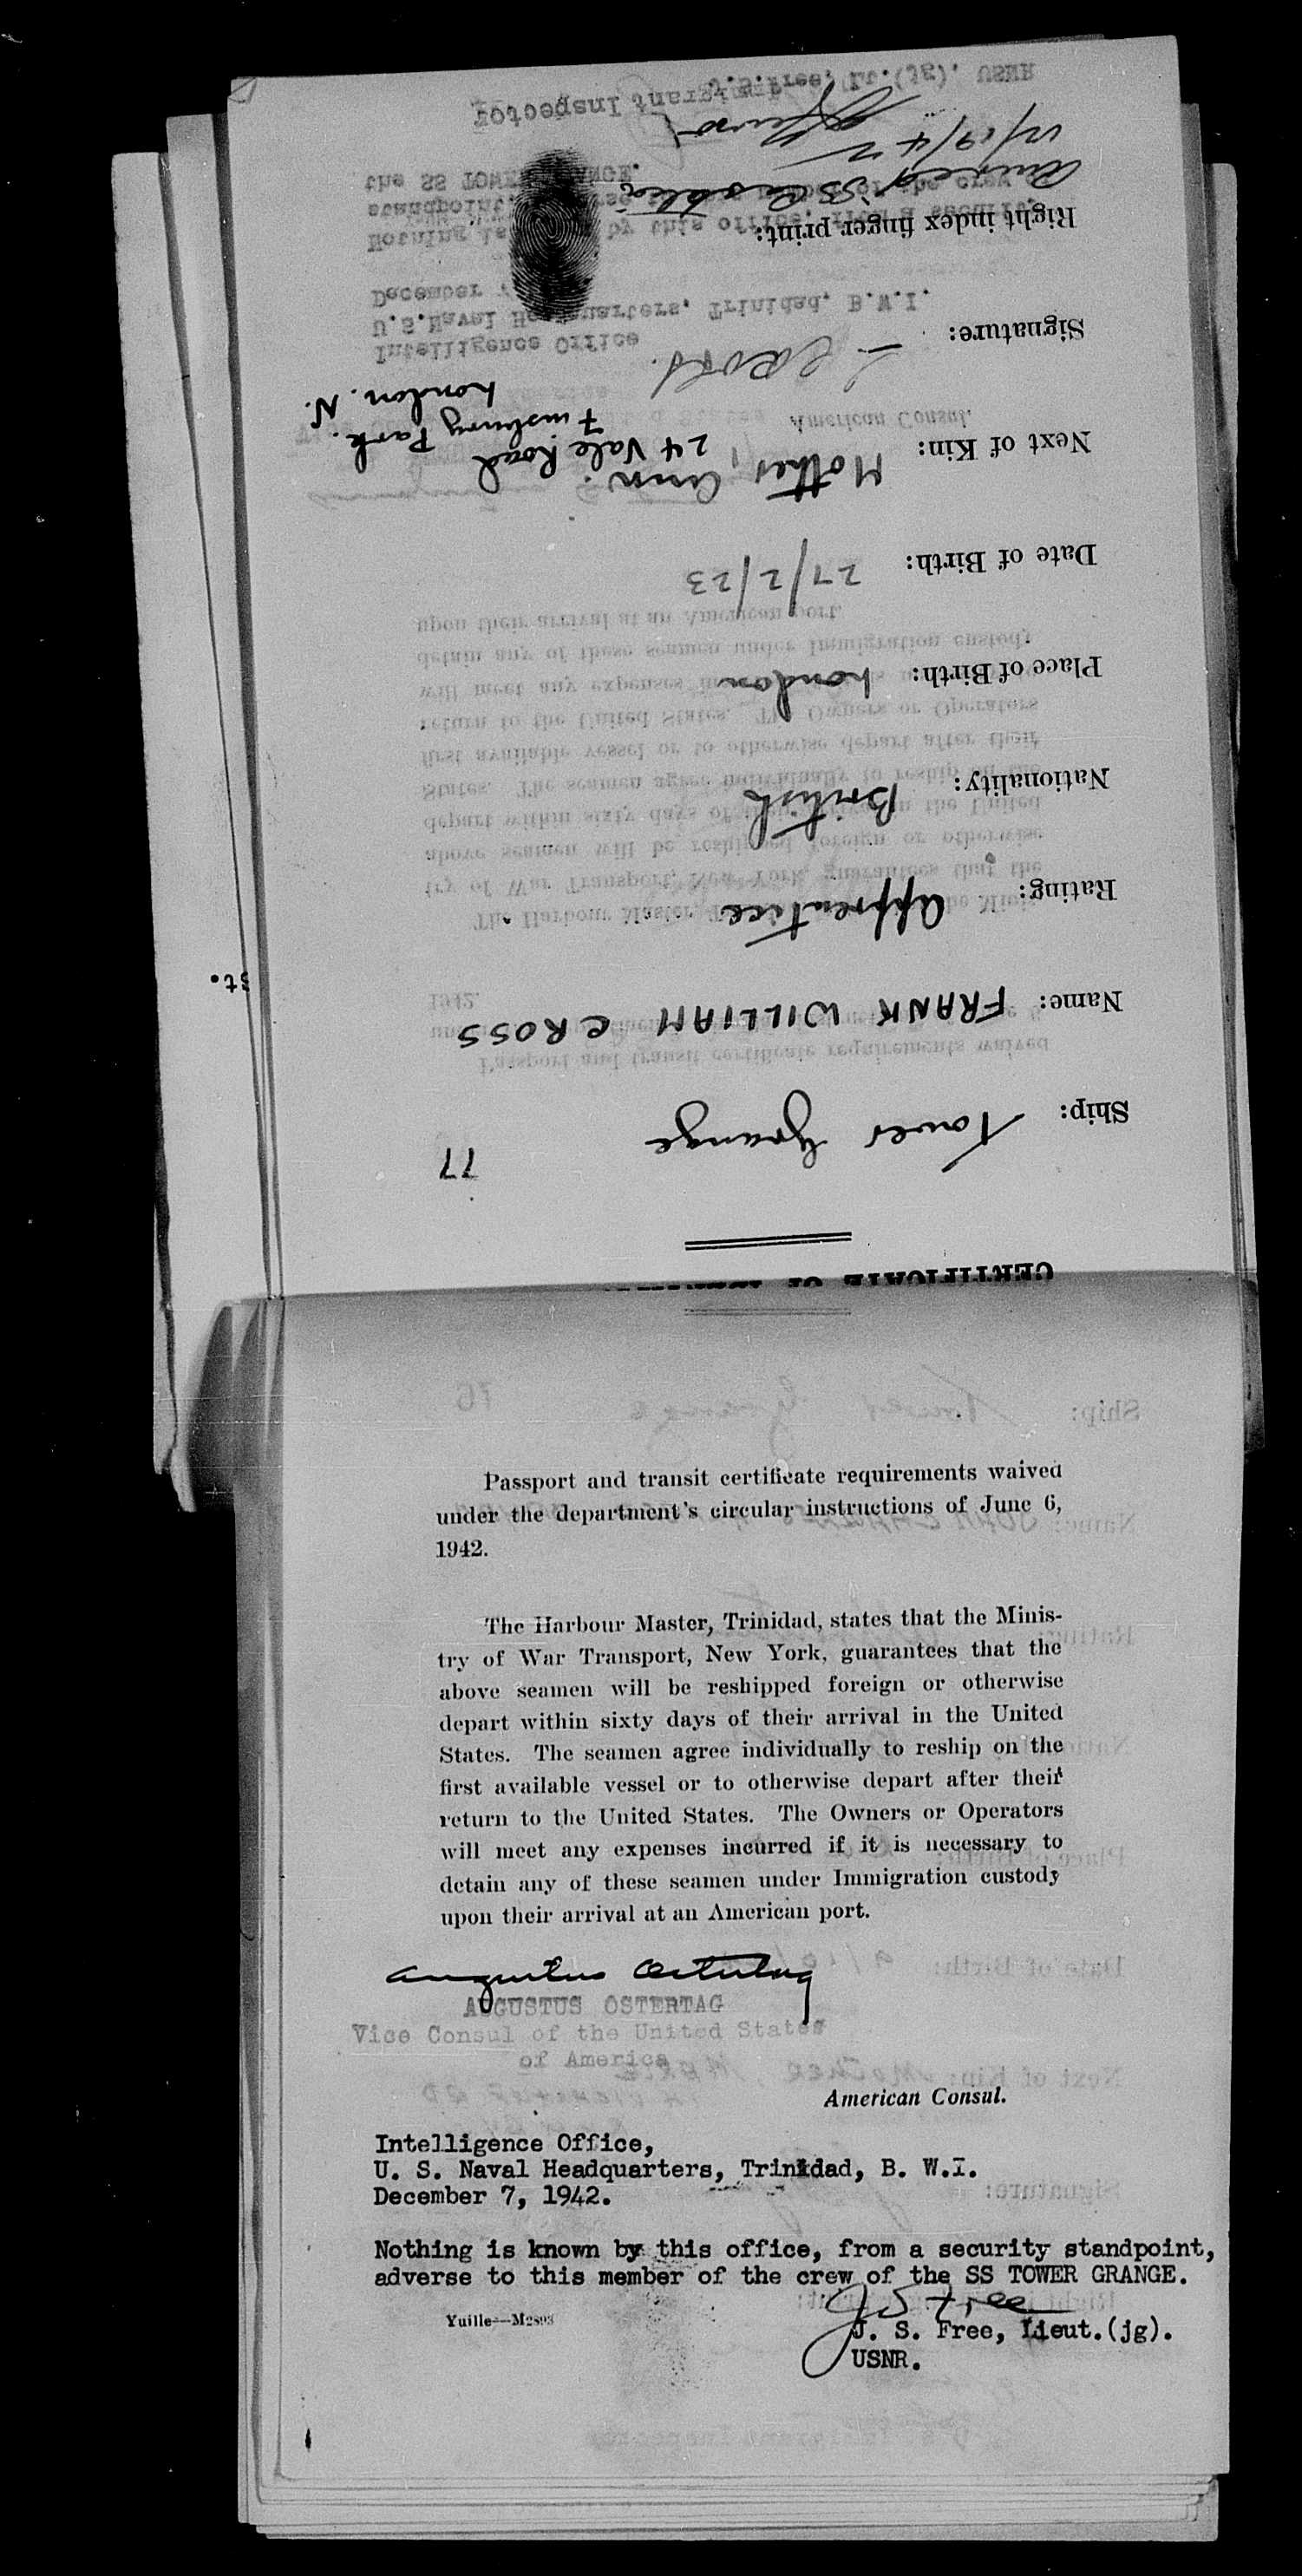 CERTIFICATE OF
Ship: Tower Grange
77
Name: FRANK WILLIAM CROSS
Rating: Apprentice
Nationality: British
Place of Birth: London
Date of Birth: 27/2/23
Next of Kin: Mother, Ann.
24 Vale Road
Finsbury Park.
London. N.
Signature: F. CROSS.
Right index finger print:
12/19/42
Immigrant Inspector
st.
Passport and transit certificate requirements waived
under the department's circular instructions of June 6,
1942.
The Harbour Master, Trinidad, states that the Minis-
try of War Transport, New York, guarantees that the
above seamen will be reshipped foreign or otherwise
depart within sixty days of their arrival in the United
States. The seamen agree individually to reship on the
first available vessel or to otherwise depart after their
return to the United States. The Owners or Operators
will meet any expenses incurred if it is necessary to
detain any of these seamen under Immigration custody
upon their arrival at an American port.
Augustus Ostertag
AUGUSTUS OSTERTAG
Vice Consul of the United States
of America
American Consul.
Intelligence Office,
U. S. Naval Headquarters, Trinidad, B. W.I.
December 7, 1942.
Nothing is known by this office, from a security standpoint,
adverse to this member of the crew of the SS TOWER GRANGE.
J S Free
J. S. Free, Lieut.(jg).
USNR.
Yuille—M2893